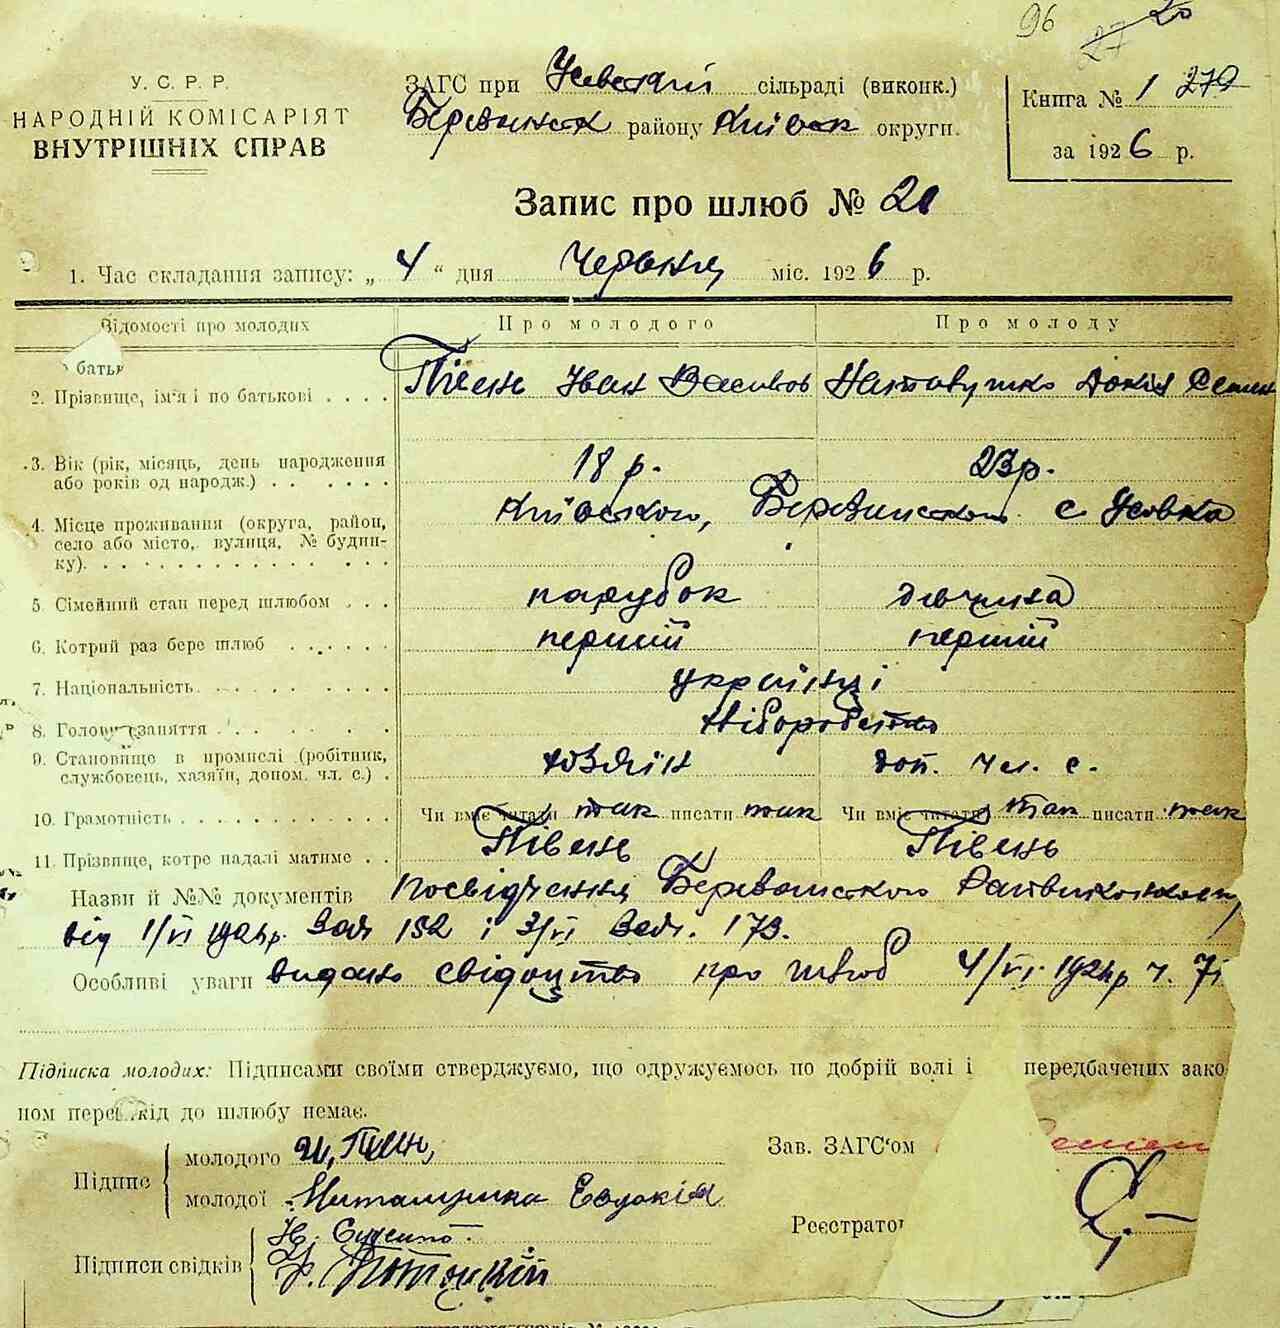 96 27 20
У. С. Р. Р.
НАРОДНІЙ КОМІСАРІЯТ
ВНУТРІШНІХ СПРАВ
ЗАГС при Усівській сільраді (виконк.)
Березанськ району Київськ округи.
Книга № 1 279
за 1926 р.
Запис про шлюб № 20
1. Час складання запису: „ 4 “ дня Червня міс. 1926 р.
Відомості про молодих Про молодого Про молоду
батьк
2. Прізвище, ім'я і по батькові Півень Іван Васильов Докія Семен
3. Вік (рік, місяць, день народження 18 р. 23 р.
або років од народж.)
4. Місце проживання (округа, район, Київського, Березанського с Усовка
село або місто, вулиця, № будин-
ку)
5. Сімейний стан перед шлюбом парубок дівчина
6. Котрий раз бере шлюб перший перший
7. Національність українці
8. Головн заняття хліборобство
9. Становище в промислі (робітник, хозяїн доп. чл. с.
службовець, хазяїн, допом. чл. с.)
10. Грамотність Чи вміє читати так писати так Чи вміє читати так писати так
11. Прізвище, котре надалі матиме Півень Півень
Назви й №№ документів посвідчення Березанського Райвиконкому
від 1/VI 192 р. 152 і 3/VI 173.
Особливі уваги видано свідоцтво про шлюб 4/VI 192 р ч. 71
Підписка молодих: Підписами своїми стверджуємо, що одружуємось по добрій волі і передбачених зако-
ном перешкід до шлюбу немає.
Підпис молодого И. Пивн
молодої Евдокія
Зав. ЗАГС'ом
Реєстратор
Підписи свідків Потоцкій